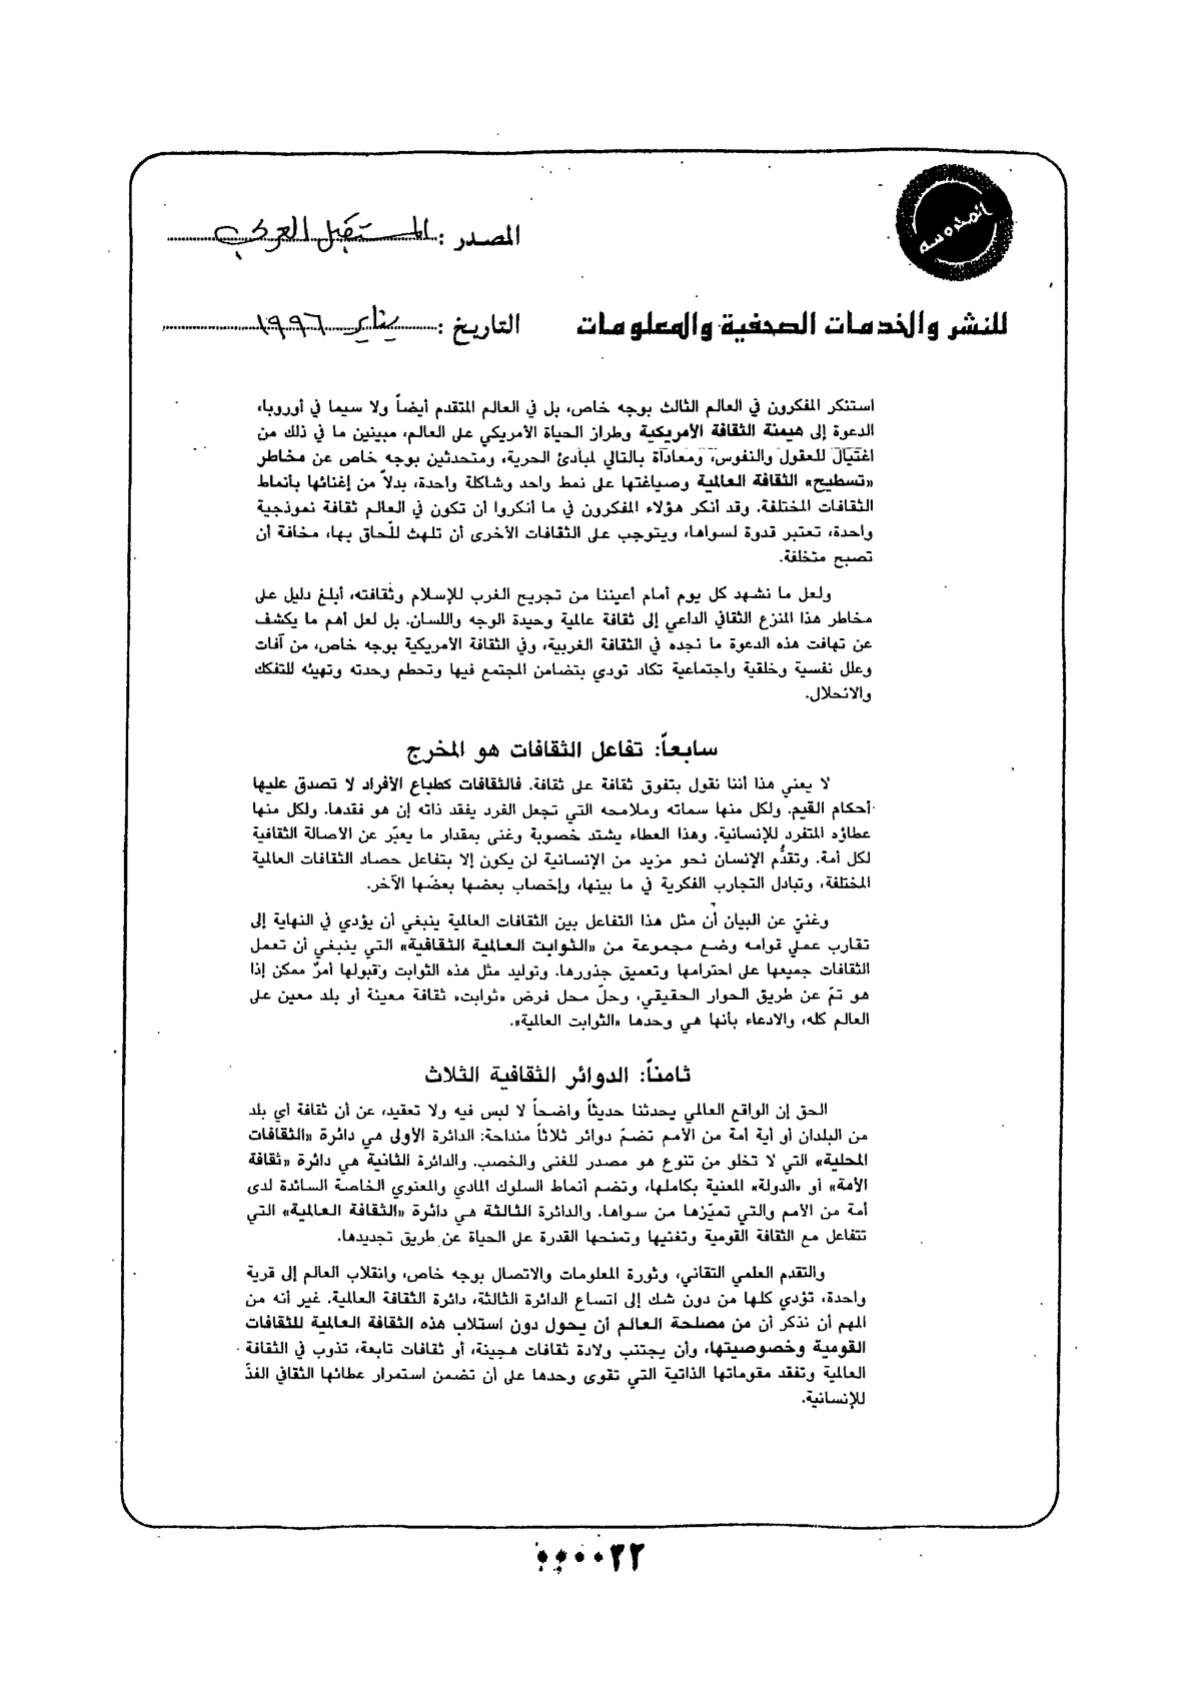 المدروسه
المصدر : المستقبل العربي
للنشر والخدمات الصحفية والمعلومات
التاريخ : يناير ١٩٩٦
استنكر المفكرون في العالم الثالث بوجه خاص، بل في العالم المتقدم أيضاً ولا سيما في أوروبا،
الدعوة إلى هيمنة الثقافة الأمريكية وطراز الحياة الأمريكي على العالم، مبينين ما في ذلك من
اغتيال للعقول والنفوس، ومعاداة بالتالي لمبادئ الحرية، ومتحدثين بوجه خاص عن مخاطر
«تسطيح» الثقافة العالمية وصياغتها على نمط واحد وشاكلة واحدة، بدلاً من إغنائها بأنماط
الثقافات المختلفة. وقد أنكر هؤلاء المفكرون في ما أنكروا أن تكون في العالم ثقافة نموذجية
واحدة، تعتبر قدوة لسواها، ويتوجب على الثقافات الأخرى أن تلهث للّحاق بها، مخافة أن
تصبح متخلفة.
ولعل ما نشهد كل يوم أمام أعيننا من تجريح الغرب للإسلام وثقافته، أبلغ دليل على
مخاطر هذا المنزع الثقافي الداعي إلى ثقافة عالمية وحيدة الوجه واللسان. بل لعل أهم ما يكشف
عن تهافت هذه الدعوة ما نجده في الثقافة الغربية، وفي الثقافة الأمريكية بوجه خاص، من آفات
وعلل نفسية وخلقية واجتماعية تكاد تودي بتضامن المجتمع فيها وتحطم وحدته وتهيئه للتفكك
والانحلال.
سابعاً: تفاعل الثقافات هو المخرج
لا يعني هذا أننا نقول بتفوق ثقافة على ثقافة. فالثقافات كطباع الأفراد لا تصدق عليها
أحكام القيم. ولكل منها سماته وملامحه التي تجعل الفرد يفقد ذاته إن هو فقدها. ولكل منها
عطاؤه المتفرد للإنسانية. وهذا العطاء يشتد خصوبة وغنى بمقدار ما يعبّر عن الأصالة الثقافية
لكل أمة. وتقدُّم الإنسان نحو مزيد من الإنسانية لن يكون إلا بتفاعل حصاد الثقافات العالمية
المختلفة، وتبادل التجارب الفكرية في ما بينها، وإخصاب بعضها بعضها الآخر.
وغنيّ عن البيان أن مثل هذا التفاعل بين الثقافات العالمية ينبغي أن يؤدي في النهاية إلى
تقارب عملي قوامه وضع مجموعة من «الثوابت العالمية الثقافية» التي ينبغي أن تعمل
الثقافات جميعها على احترامها وتعميق جذورها. وتوليد مثل هذه الثوابت وقبولها أمرٌ ممكن إذا
هو تمّ عن طريق الحوار الحقيقي، وحلّ محل فرض «ثوابت» ثقافة معينة أو بلد معين على
العالم كله، والادعاء بأنها هي وحدها «الثوابت العالمية».
ثامناً: الدوائر الثقافية الثلاث
الحق إن الواقع العالمي يحدثنا حديثاً واضحاً لا لبس فيه ولا تعقيد، عن أن ثقافة أي بلد
من البلدان أو أية أمة من الأمم تضمّ دوائر ثلاثاً منداحة: الدائرة الأولى هي دائرة «الثقافات
المحلية» التي لا تخلو من تنوع هو مصدر للغنى والخصب. والدائرة الثانية هي دائرة «ثقافة
الأمة» أو «الدولة» المعنية بكاملها، وتضم أنماط السلوك المادي والمعنوي الخاصة السائدة لدى
أمة من الأمم والتي تميّزها من سواها. والدائرة الثالثة هي دائرة «الثقافة العالمية» التي
تتفاعل مع الثقافة القومية وتغنيها وتمنحها القدرة على الحياة عن طريق تجديدها.
والتقدم العلمي التقاني، وثورة المعلومات والاتصال بوجه خاص، وانقلاب العالم إلى قرية
واحدة، تؤدي كلها من دون شك إلى اتساع الدائرة الثالثة، دائرة الثقافة العالمية. غير أنه من
المهم أن نذكر أن من مصلحة العالم أن يحول دون استلاب هذه الثقافة العالمية للثقافات
القومية وخصوصيتها، وأن يجتنب ولادة ثقافات هجينة، أو ثقافات تابعة، تذوب في الثقافة
العالمية وتفقد مقوماتها الذاتية التي تقوى وحدها على أن تضمن استمرار عطائها الثقافي الفذّ
للإنسانية.